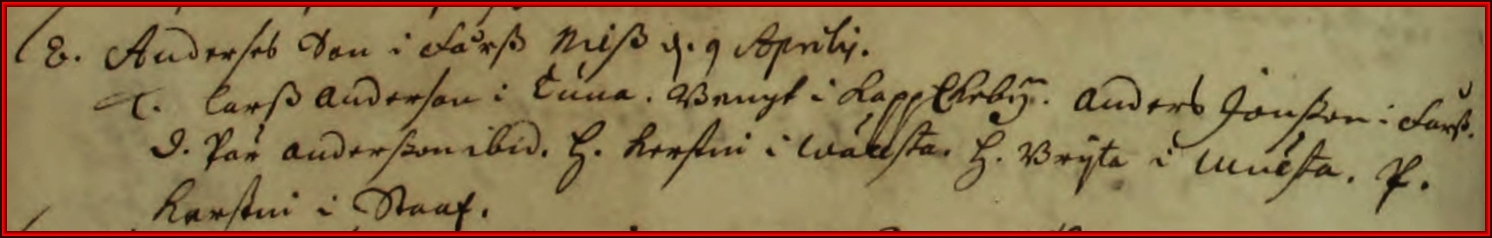 B. Anderses Son i Farß Nilß d. 9 Aprilij.
T. Larß Anderson i Tuna. Bengt i Kappllebÿ. Anders Jonßon i Farß.
D. Pär Anderßon ibid. H. Kerstin i Wällsta. H. Brijta i Mulsta. P.
Kerstin i Staaf.